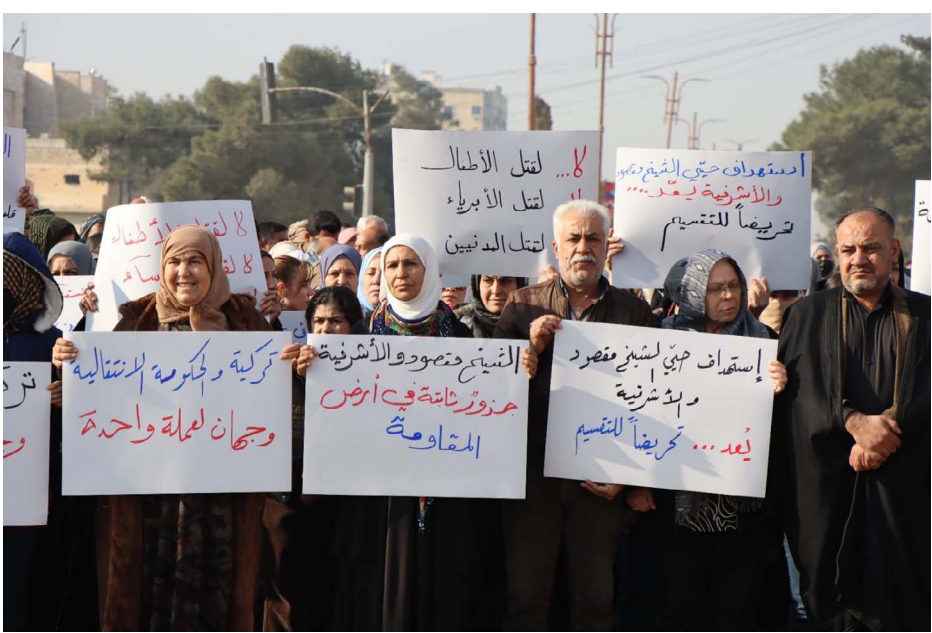 لا... لقتل الأطفال
لقتل الأبرياء
لقتل المدنيين
استهداف حيّي الشيخ مقصود
والأشرفية يعد....
تحريضاً للتقسيم
لا لقتل الأطفال
لا
تركية والحكومة الانتقالية
وجهان لعملة واحدة
الشيخ مقصود والأشرفية
جذور ثابتة في أرض
المقاومة
إستهداف حيّي الشيخ مقصود
والأشرفية
يُعد... تحريضاً للتقسيم